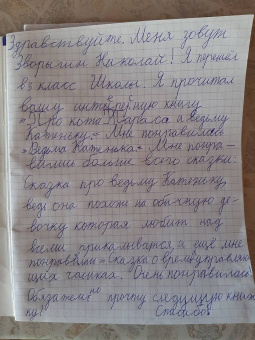 Здравствуйте. Меня зовут
Зворыгин Николай! Я перешёл
в 3 класс Школы. Я прочитал
вашу интересную книгу
"Про кота Карабаса и ведьму
Катеньку." Мне понравилась
"Ведьма Катенька." Мне понра-
вились больше всего сказки:
Сказка про ведьму Катеньку,
ведь она похожа на обычную де-
вочку которая любит над
всеми прикалываться, и ещё мне
понравилась "Сказка о время управляю-
щих часиках. Очень понравилась
Обязательно прочту следущую книж-
ку! Спасибо